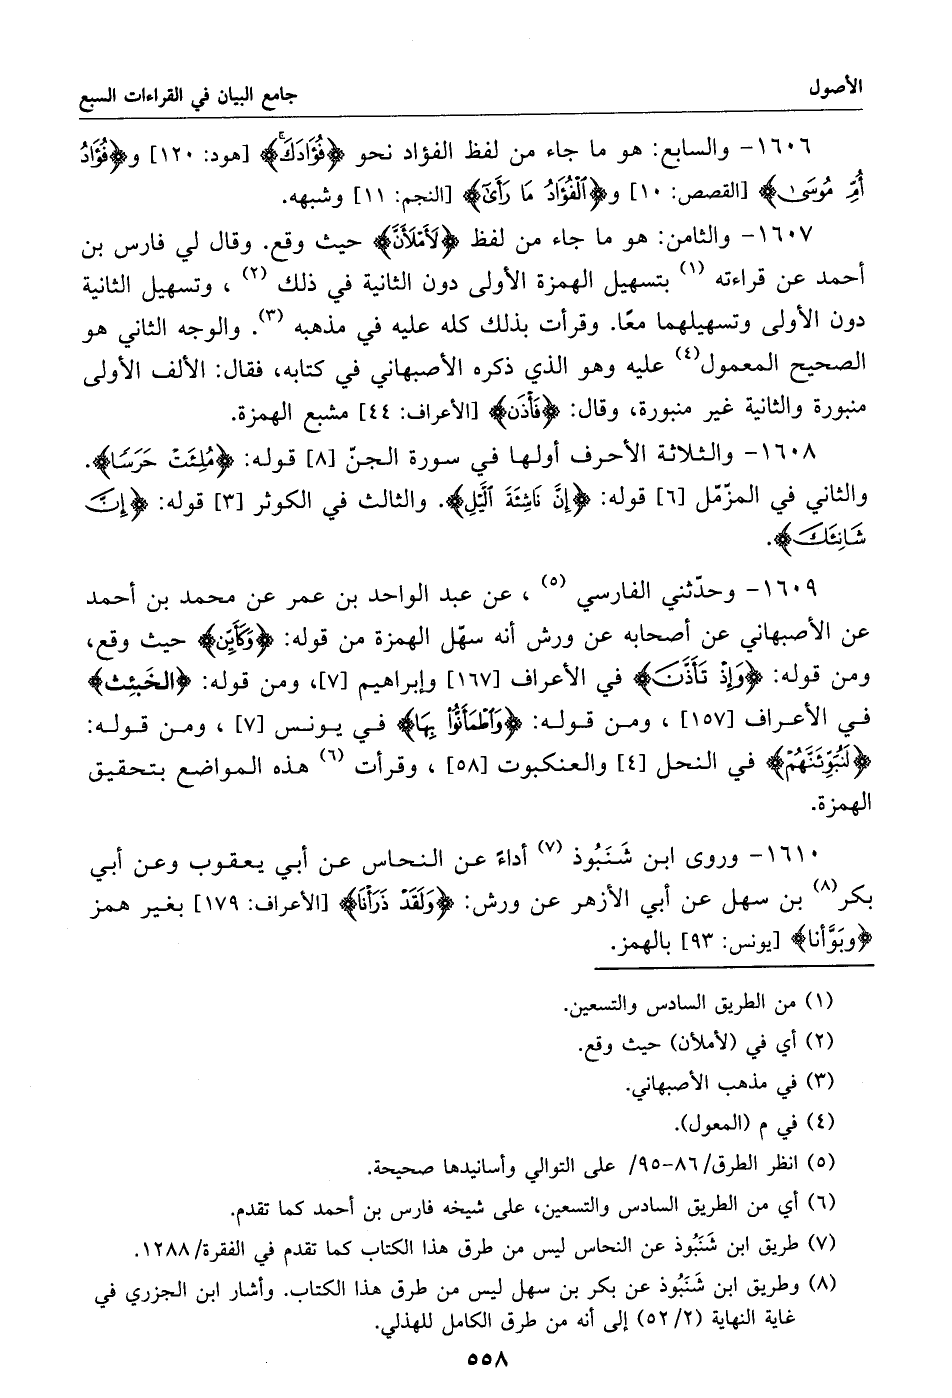 الأصول
جامع البيان في القراءات السبع
١٦٠٦- والسابع: هو ما جاء من لفظ الفؤاد نحو ﴿فُؤَادَكَ﴾ [هود: ١٢٠] و﴿فُؤَادُ
أُمِّ مُوسَىٰ﴾ [القصص: ١٠] و﴿ٱلْفُؤَادُ مَا رَأَىٰ﴾ [النجم: ١١] وشبهه.
١٦٠٧- والثامن: هو ما جاء من لفظ ﴿لَأَمْلَأَنَّ﴾ حيث وقع. وقال لي فارس بن
أحمد عن قراءته (١) بتسهيل الهمزة الأولى دون الثانية في ذلك (٢) ، وتسهيل الثانية
دون الأولى وتسهيلهما معًا. وقرأت بذلك كله عليه في مذهبه (٣). والوجه الثاني هو
الصحيح المعمول(٤) عليه وهو الذي ذكره الأصبهاني في كتابه، فقال: الألف الأولى
منبورة والثانية غير منبورة، وقال: ﴿فَأَذَّن﴾ [الأعراف: ٤٤] مشبع الهمزة.
١٦٠٨- والثلاثة الأحرف أولها في سورة الجنّ [٨] قوله: ﴿مُلِئَتْ حَرَسًا﴾.
والثاني في المزمّل [٦] قوله: ﴿إِنَّ نَاشِئَةَ ٱلَّيْلِ﴾. والثالث في الكوثر [٣] قوله: ﴿إِنَّ
شَانِئَكَ﴾.
١٦٠٩- وحدّثني الفارسي (٥) ، عن عبد الواحد بن عمر عن محمد بن أحمد
عن الأصبهاني عن أصحابه عن ورش أنه سهّل الهمزة من قوله: ﴿وَكَأَيِّن﴾ حيث وقع،
ومن قوله: ﴿وَإِذْ تَأَذَّنَ﴾ في الأعراف [١٦٧] وإبراهيم [٧]، ومن قوله: ﴿الخَبَٰئِثَ﴾
في الأعراف [١٥٧] ، ومن قوله: ﴿وَٱطْمَأَنُّوا۟ بِهَا﴾ في يونس [٧] ، ومن قوله:
﴿لَنُبَوِّئَنَّهُمْ﴾ في النحل [٤] والعنكبوت [٥٨] ، وقرأت (٦) هذه المواضع بتحقيق
الهمزة.
١٦١٠- وروى ابن شَنَبُوذ (٧) أداءً عن النحاس عن أبي يعقوب وعن أبي
بكر(٨) بن سهل عن أبي الأزهر عن ورش: ﴿وَلَقَدْ ذَرَأْنَا﴾ [الأعراف: ١٧٩] بغير همز
﴿وبَوَّأنا﴾ [يونس: ٩٣] بالهمز.
(١) من الطريق السادس والتسعين.
(٢) أي في (لأملأن) حيث وقع.
(٣) في مذهب الأصبهاني.
(٤) في م (المعول).
(٥) انظر الطرق/ ٨٦-٩٥/ على التوالي وأسانيدها صحيحة.
(٦) أي من الطريق السادس والتسعين، على شيخه فارس بن أحمد كما تقدم.
(٧) طريق ابن شَنَبُوذ عن النحاس ليس من طرق هذا الكتاب كما تقدم في الفقرة/ ١٢٨٨.
(٨) وطريق ابن شَنَبُوذ عن بكر بن سهل ليس من طرق هذا الكتاب. وأشار ابن الجزري في
غاية النهاية (٥٢/٢) إلى أنه من طرق الكامل للهذلي.
٥٥٨